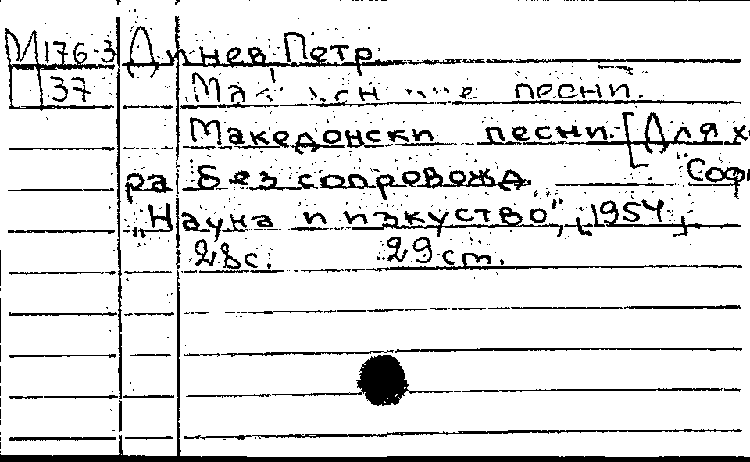 М 176-3 Динев Петр.
37 песни.
Македонски песни. [Для х
ра без сопровожд. Софи
„Наука и изкуство", [1954]
28с. 29 ст.